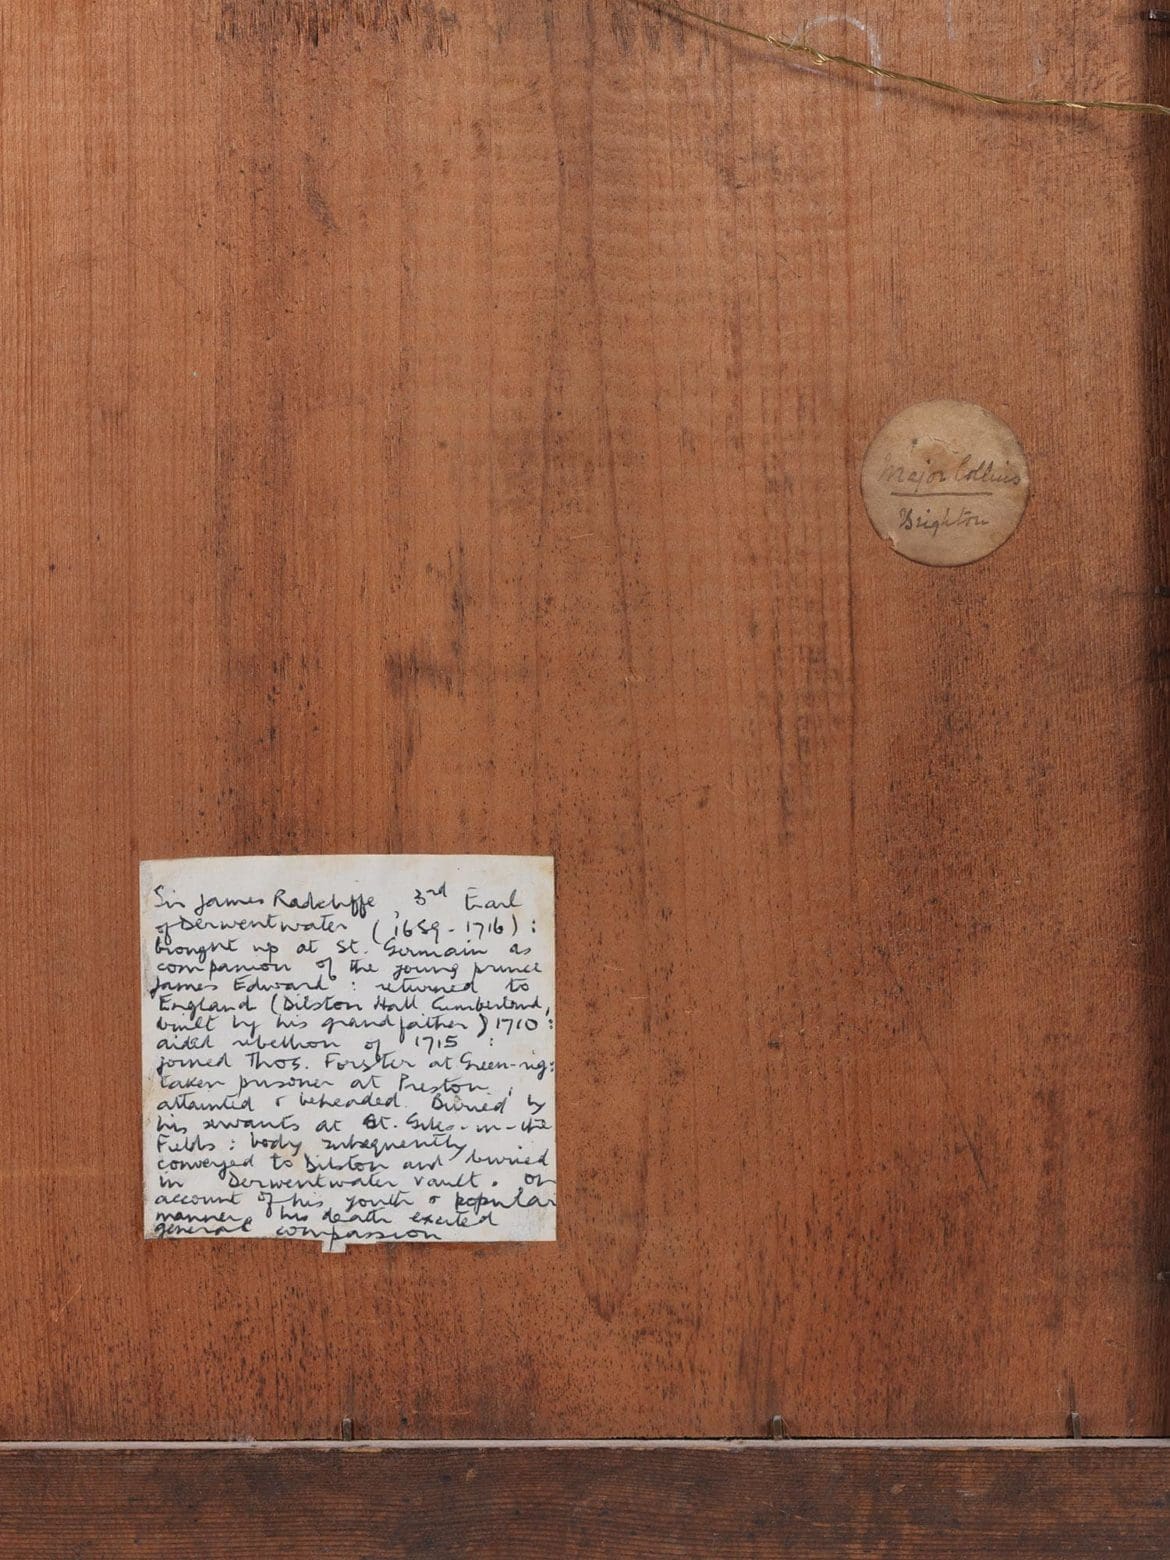 Major Collins
Brighton
Sir James Radcliffe, 3rd Earl
of Derwentwater (1689 - 1716) :
brought up at St. Germain as
companion of the young prince
James Edward : returned to
England (Dilston Hall Cumberland,
built by his grandfather) 1710 :
aided rebellion of 1715 :
joined Thos. Forster at Green-rig:
taken prisoner at Preston,
attainted & beheaded. Buried by
his servants at St. Giles-in-the
Fields : body subsequently
conveyed to Dilston and buried
in Derwentwater vault. On
account of his youth & popular
manner, his death excited
general compassion